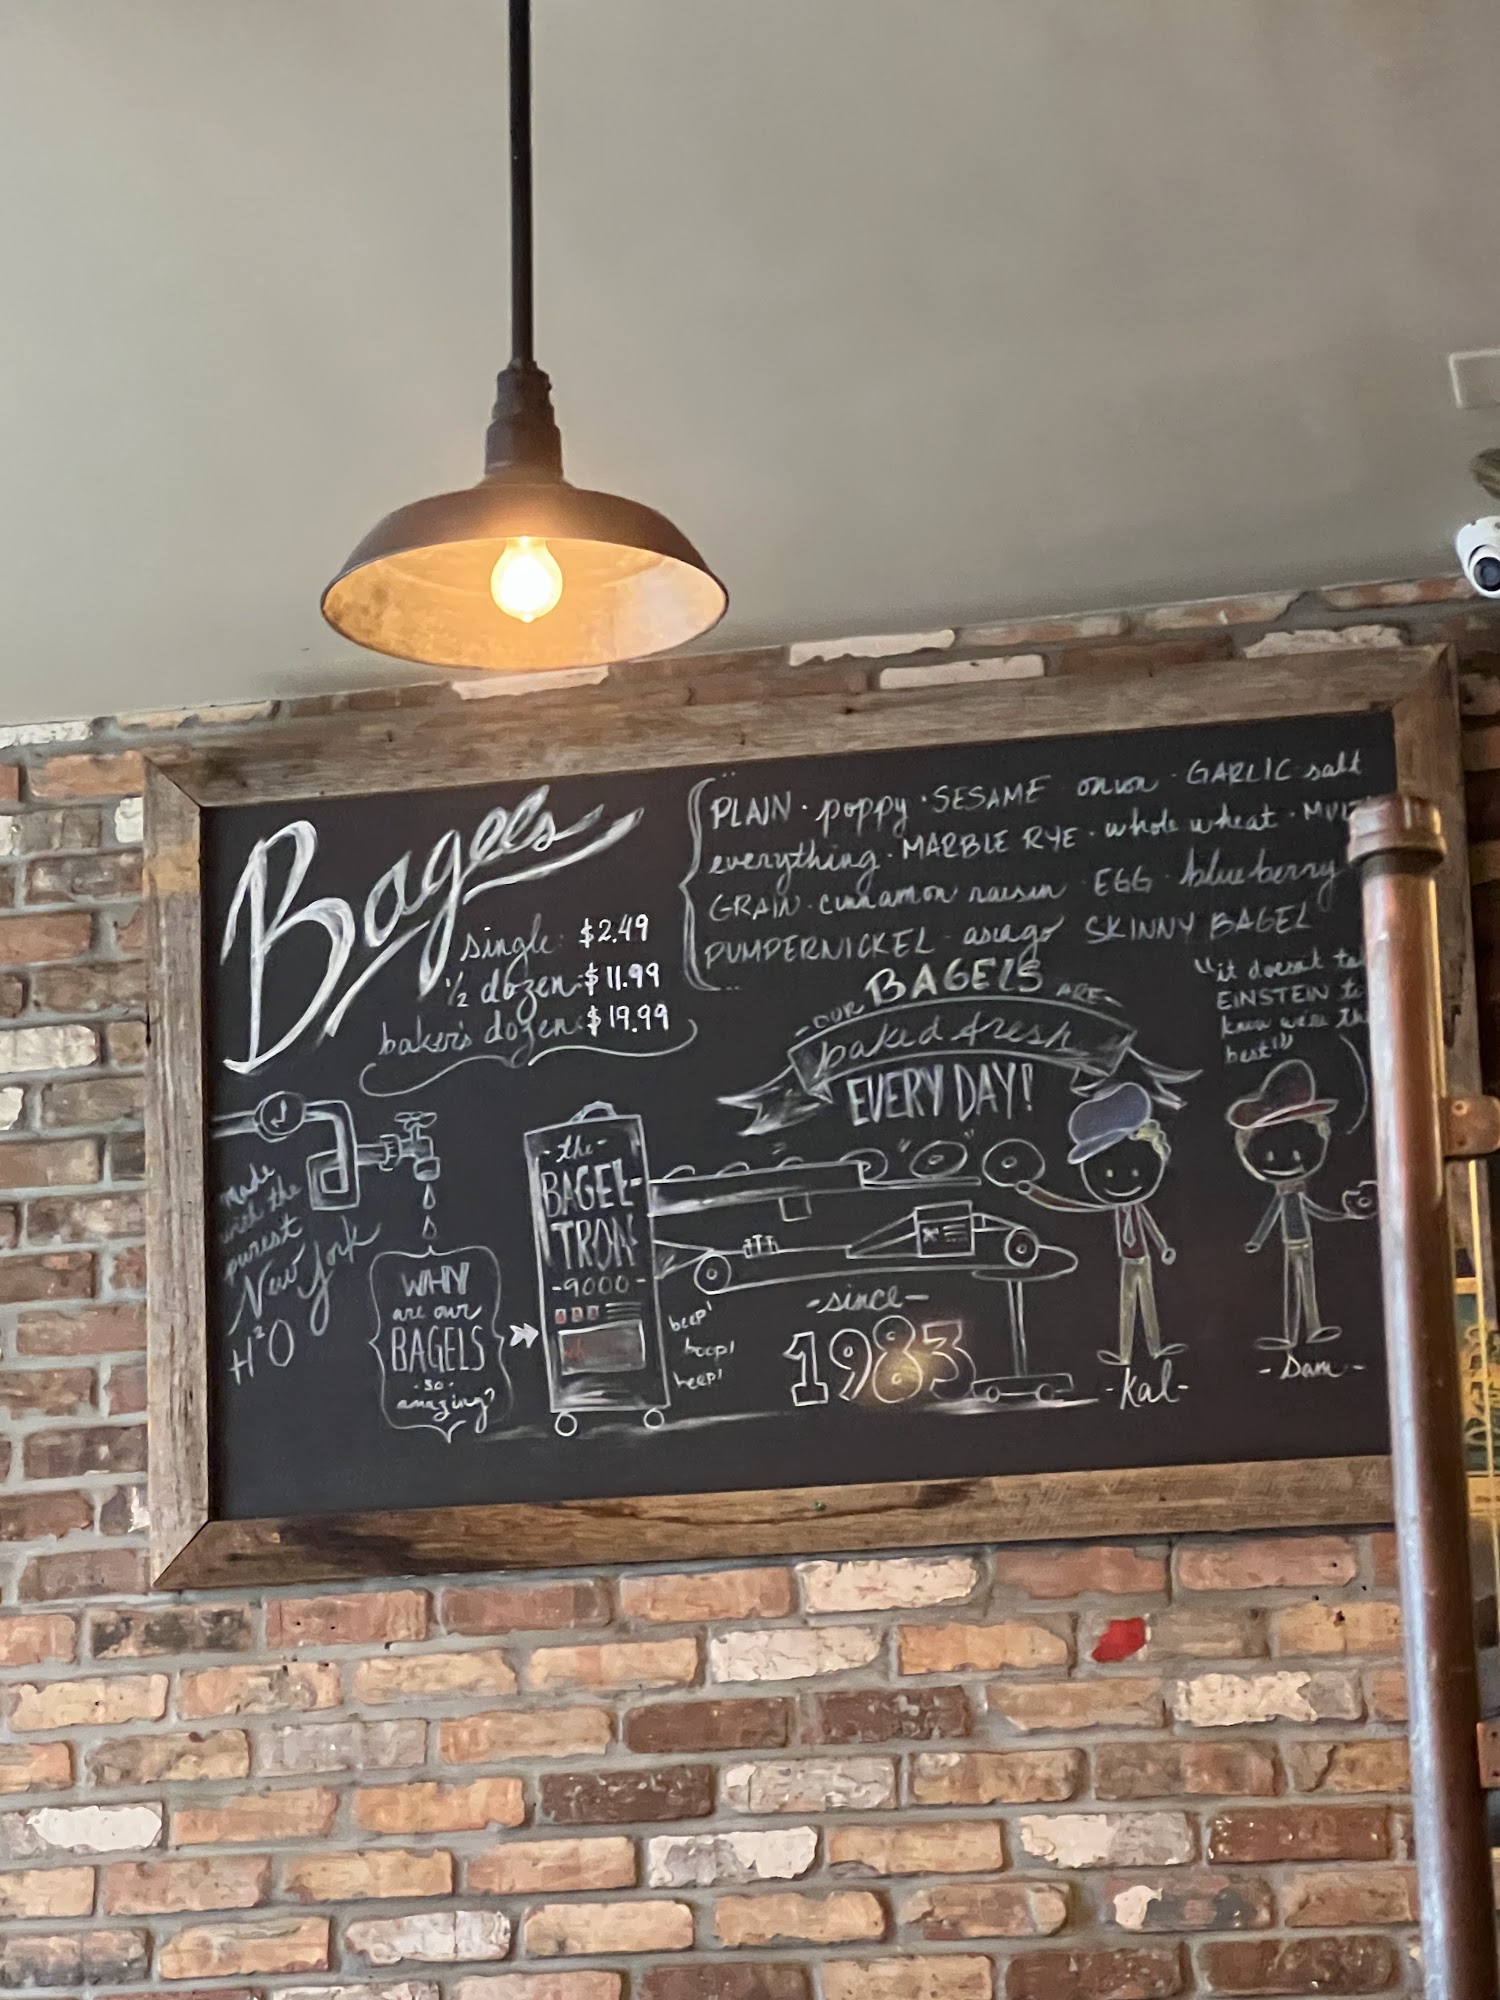 Bagels
single: $2.49
1/2 dozen: $11.99
baker's dozen: $19.99
PLAIN · poppy · SESAME onion · GARLIC salt
everything · MARBLE RYE · whole wheat ·
GRAIN · cinnamon raisin · EGG · blueberry
PUMPERNICKEL · asiago SKINNY BAGEL
- OUR BAGELS ARE -
baked fresh
EVERY DAY!
"it doesn't
EINSTEIN to
know we're
best!"
made
with the
purest
New York
H2O
WHY
are our
BAGELS
- so -
amazing?
- the -
BAGEL-
TRON
- 9000 -
beep!
boop!
beep!
- since -
1983
- Kal -
- Sam -